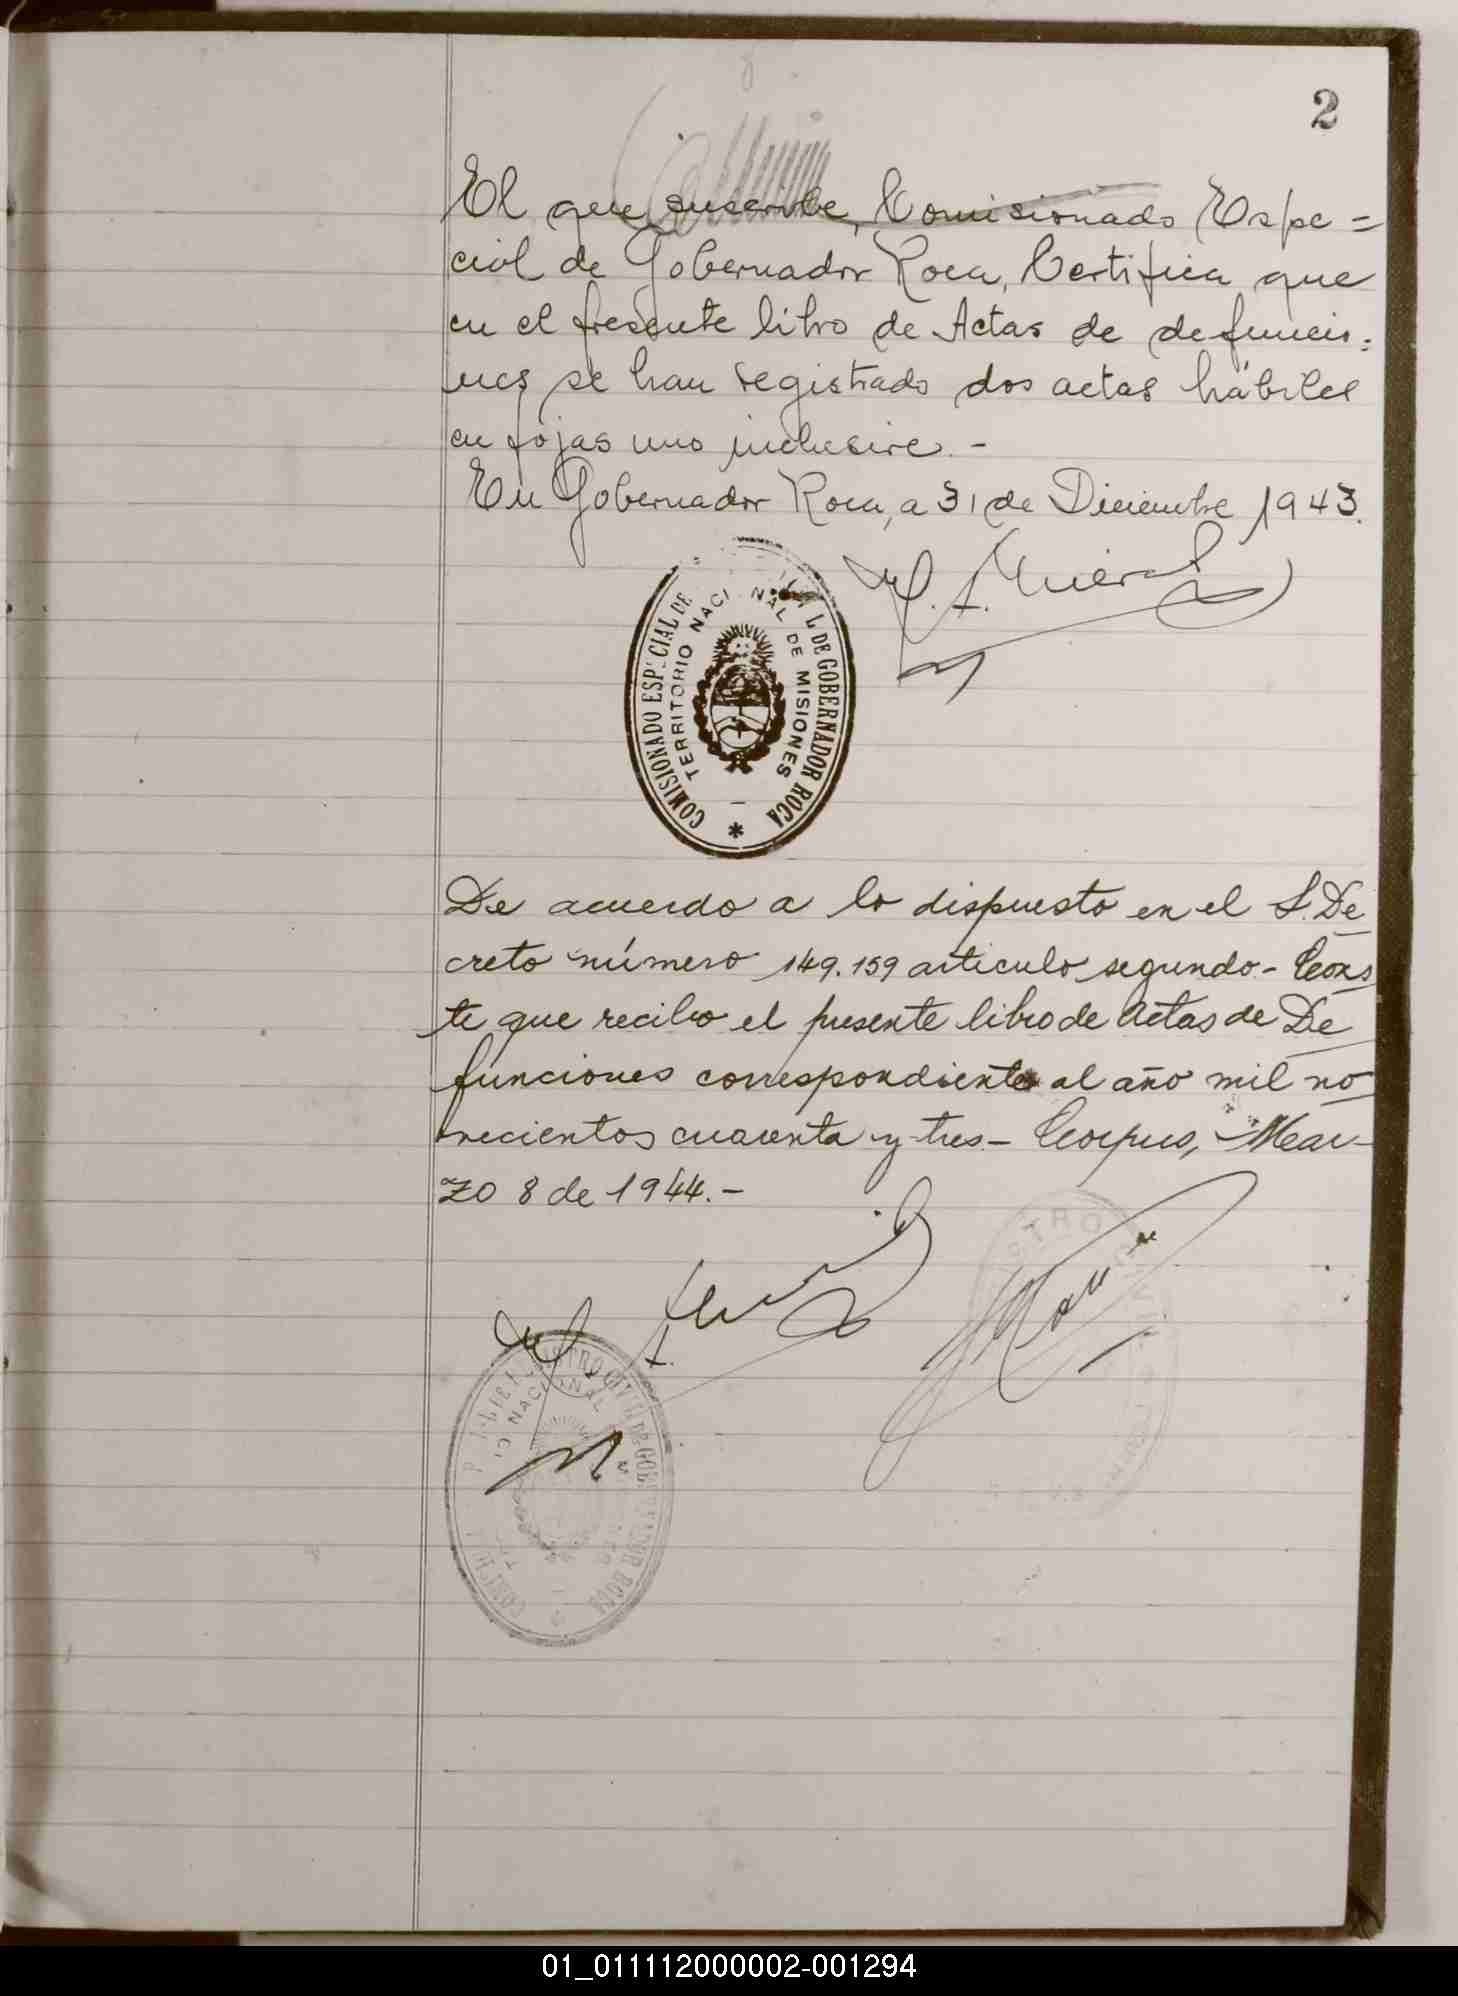 2
El que suscribe, Comisionado Espe=
cial de Gobernador Roca, Certifica que
en el presente libro de Actas de defuncio=
nes se han registrado dos actas hábiles
en fojas uno inclusive.-
En Gobernador Roca, a 31 de Diciembre 1943.
COMISIONADO ESPECIAL DE
L DE GOBERNADOR ROCA
TERRITORIO NACIONAL DE MISIONES
De acuerdo a lo dispuesto en el S. De
creto número 149.159 articulo segundo - Cons
te que recibo el presente libro de Actas de De
funciones correspondiente al año mil no
vecientos cuarenta y tres - Corpus, Mar-
zo 8 de 1944.-
01_011112000002-001294